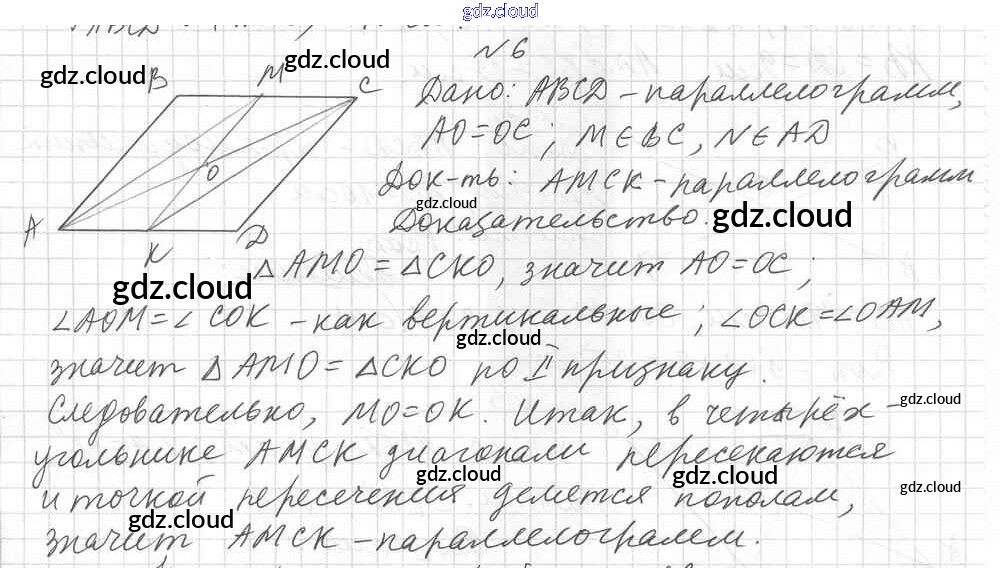 gdz.cloud
N 6
gdz.cloud B M gdz.cloud C
Дано: ABCD - параллелограмм,
AO=OC; M∈BC, N∈AD
O
Док-ть: AMCK - параллелограмм
gdz.cloud
A K D
Доказательство. gdz.cloud
△AMO = △CKO, значит AO=OC;
gdz.cloud
∠AOM=∠COK - как вертикальные; ∠OCK=∠OAM,
gdz.cloud
значит △AMO = △CKO по II признаку.
Следовательно, MO=OK. Итак, в четырёх- gdz.cloud
угольнике AMCK диагонали пересекаются
gdz.cloud gdz.cloud gdz.cloud
и точкой пересечения делятся пополам,
gdz.cloud
значит AMCK - параллелограмм.